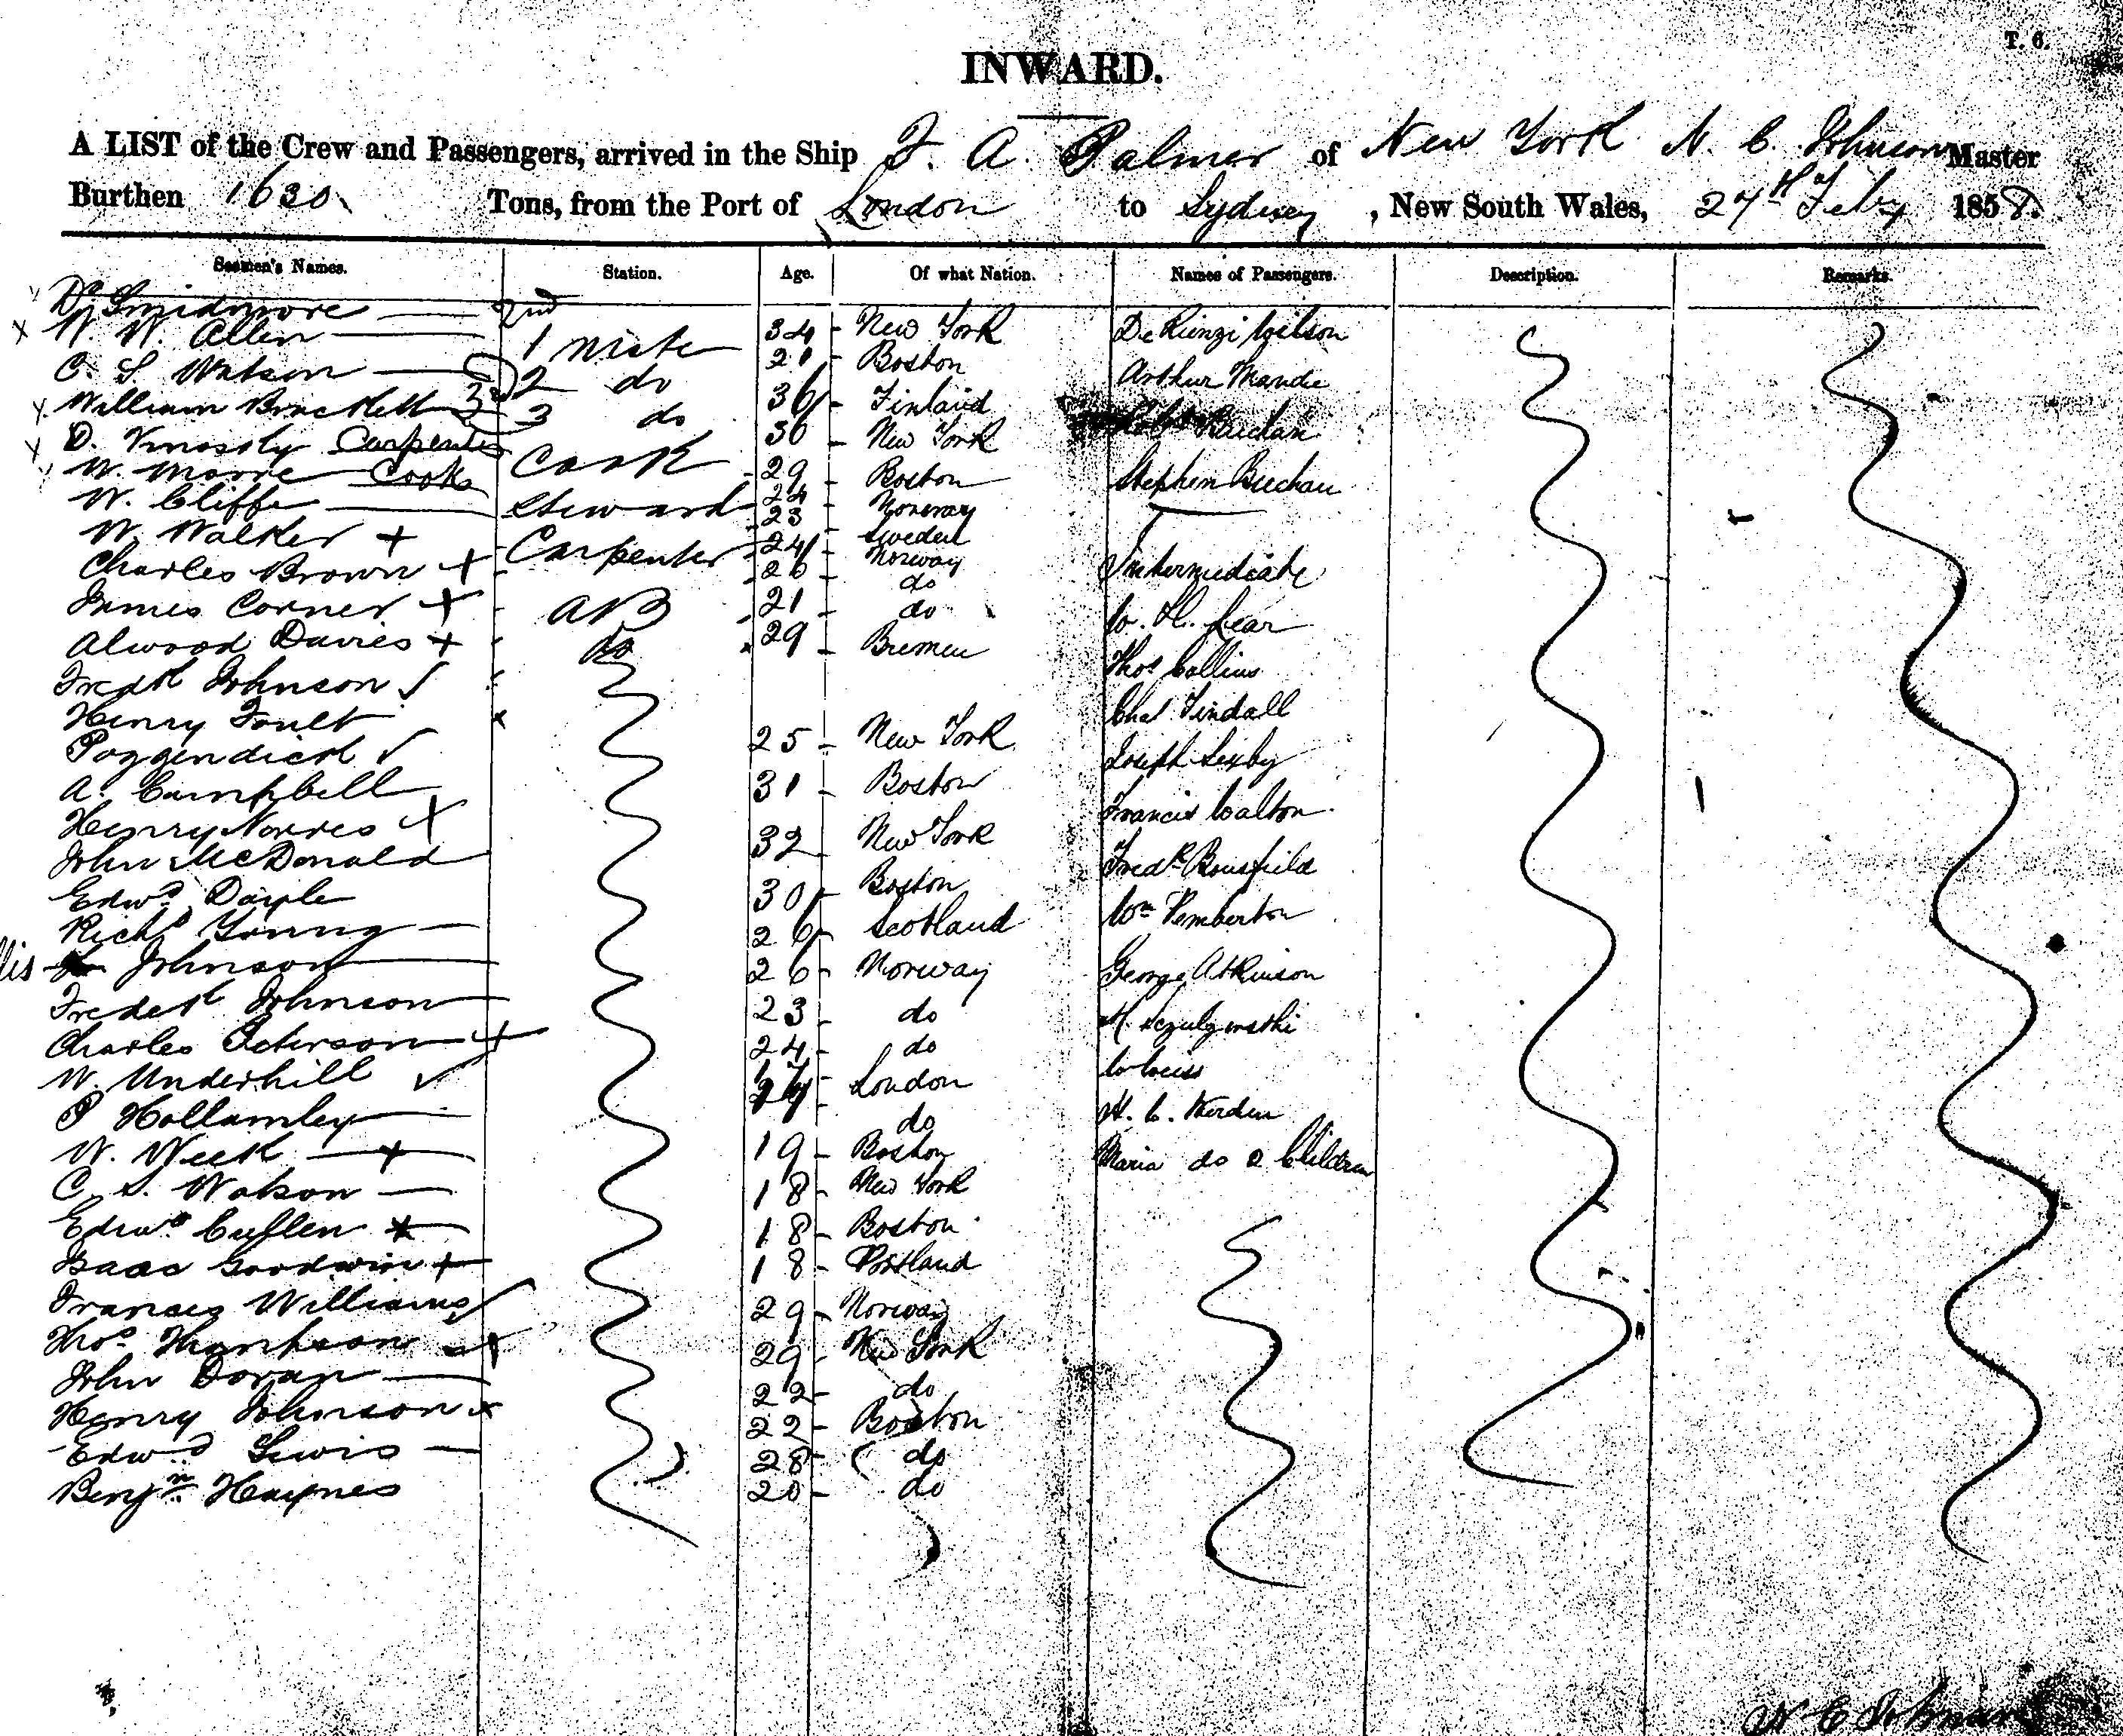 T. 6.
INWARD.
A LIST of the Crew and Passengers, arrived in the Ship F. A. Palmer of New York N. C. Johnson Master
Burthen 1630 Tons, from the Port of London to Sydney, New South Wales, 27th Feby 1858.
Seamen's Names. Station. Age. Of what Nation. Names of Passengers. Description. Remarks.
D. Smidmore 2nd
W. W. Allen 1 Mate 34 New York Wilson
C. S. Watson 2 do 21 Boston Arthur
William Brackett 3 do 36 Finland Buchan
D. Carpenter 30 New York
W. Moore Cook Cook 29 Boston Stephen Buchan
W. Cliffe Steward 24 Norway
W. Walker + 23 Sweden
Charles Brown + Carpenter 24 Norway Intermediate
26 do
James Corner + AB 21 do W. H. Lear
Alwood Davies + do 29 Bremen Thos Collins
Fredk Johnson ✓
Henry Foult Chas Tindall
Poggendick ✓ 25 New York Joseph Sexby
A. Campbell 31 Boston
Henry Norres X Francis Walton
John McDonald 32 New York Fredk Bousfield
Edwd Dayle 30 Boston
Richd Young 26 Scotland Wm Pemberton
Johnson 26 Norway George Atkinson
Fredek Johnson 23 do
Charles Peterson + 24 do
W. Underhill ✓ London
P Hollamley do H. C.
W. Week + 19 Boston Maria do 2 Children
C. S. Watson 18 New York
Edwd Cullen 18 Boston
Isaac Goodwin + 18 Portland
Francis Williams 29 Norway
Thos Thompson 29 New York
John Doran 22 do
Henry Johnson x 22 Boston
Edwd Lewis 28 do
Benjn Haynes 20 do
N C Johnson